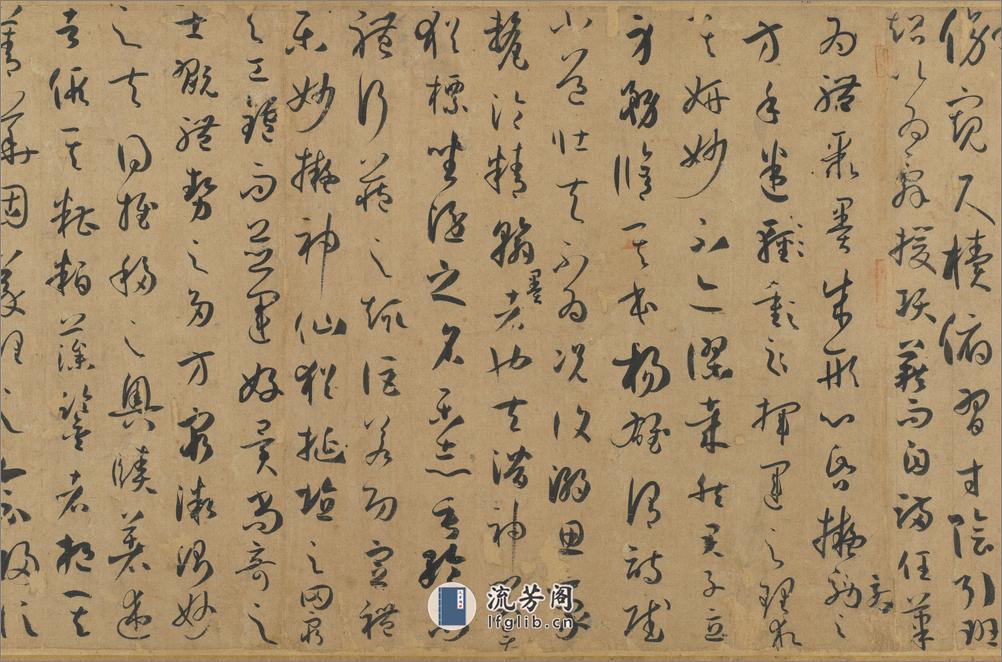 傍窺尺牘俯習寸陰引班
超以為辭援項藉而自滿任筆
為體聚墨成形心昏擬效之
方手迷揮運之理求
其妍妙不亦謬哉然君子立
身務脩其本楊雄謂詩賦
小道壯夫不為況復溺思豪
氂淪精翰墨者也夫潛神對奕
猶標坐隱之名樂志垂綸尚
體行藏之趣詎若功宣禮
樂妙擬神仙猶埏埴之罔窮
與工鑪而並運好異尚奇之
士翫體勢之多方窮微測妙
之夫得推移之奧賾著述
者假其糟粕藻鑒者挹其
菁華固義理之會歸信
流芳阁
lfglib.cn